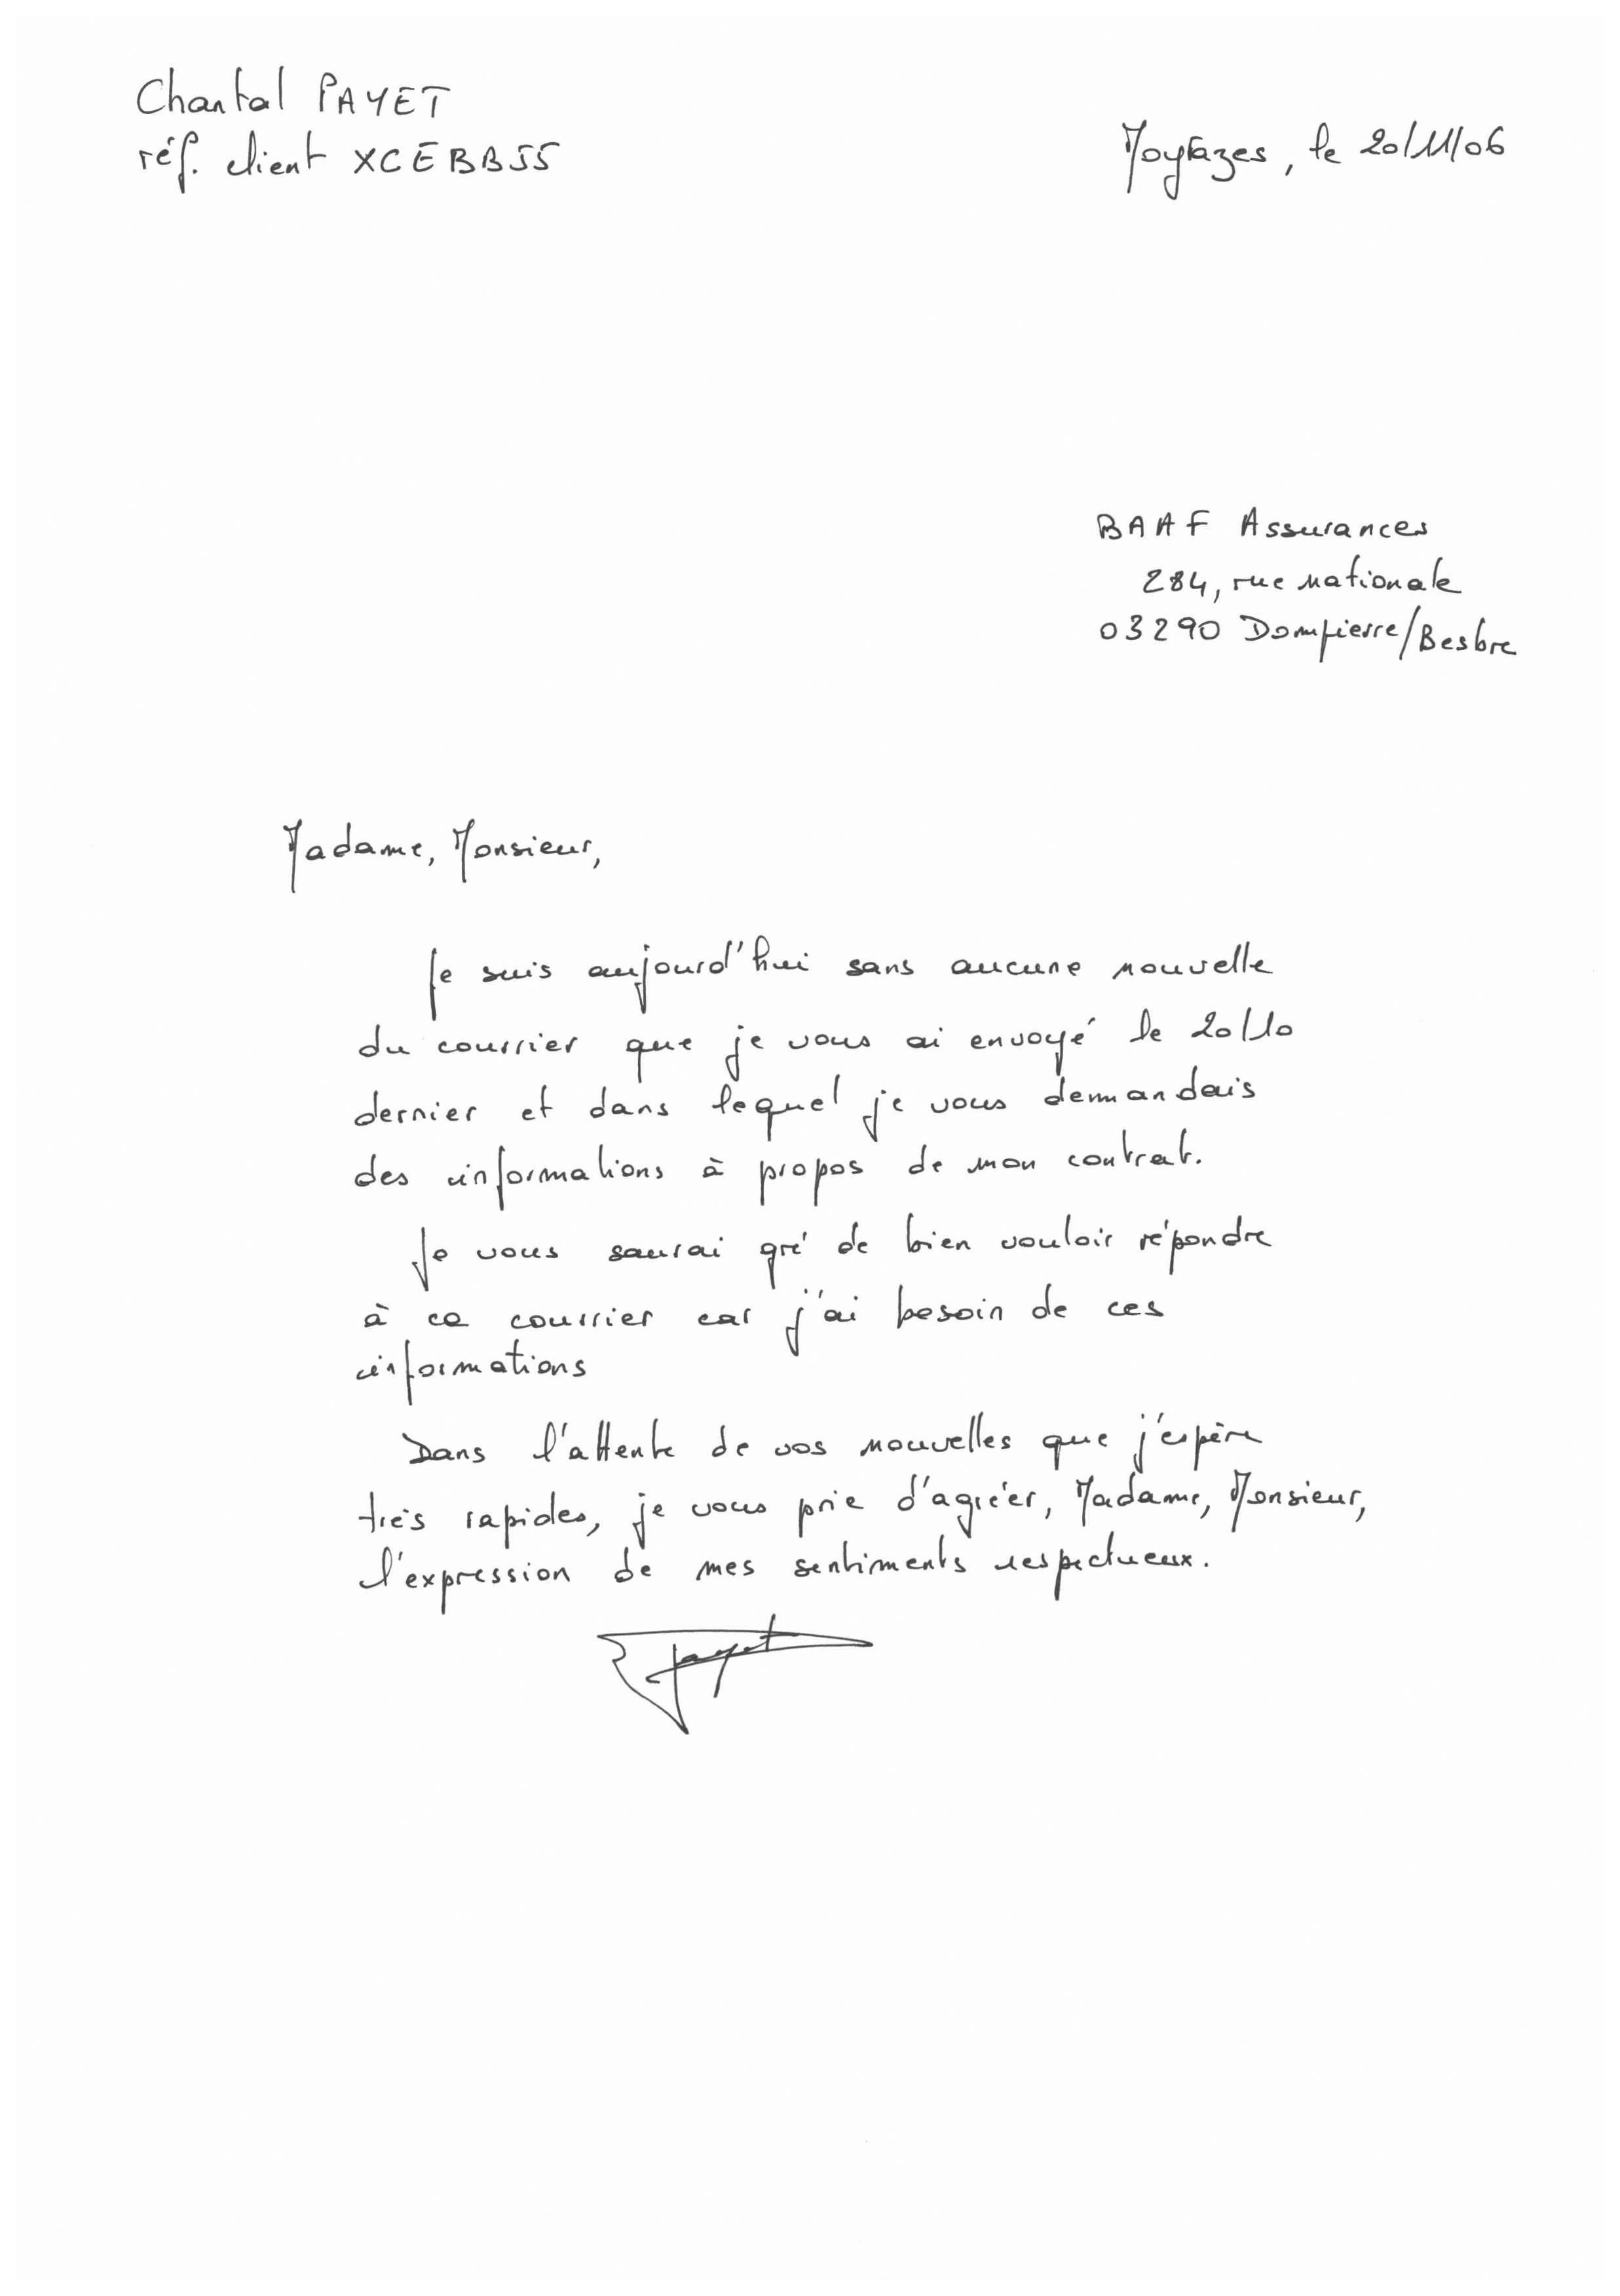 Chantal PAYET
réf. client XCEBB55
Moyrazes, le 20/11/06
BAAF Assurances
284, rue nationale
03290 Dompierre/Besbre
Madame, Monsieur,
Je suis aujourd'hui sans aucune nouvelle
du courrier que je vous ai envoyé le 20/10
dernier et dans lequel je vous demandais
des informations à propos de mon contrat.
Je vous saurai gré de bien vouloir répondre
à ce courrier car j'ai besoin de ces
informations
Dans l'attente de vos nouvelles que j'espère
très rapides, je vous prie d'agréer, Madame, Monsieur,
l'expression de mes sentiments respectueux.
Payet